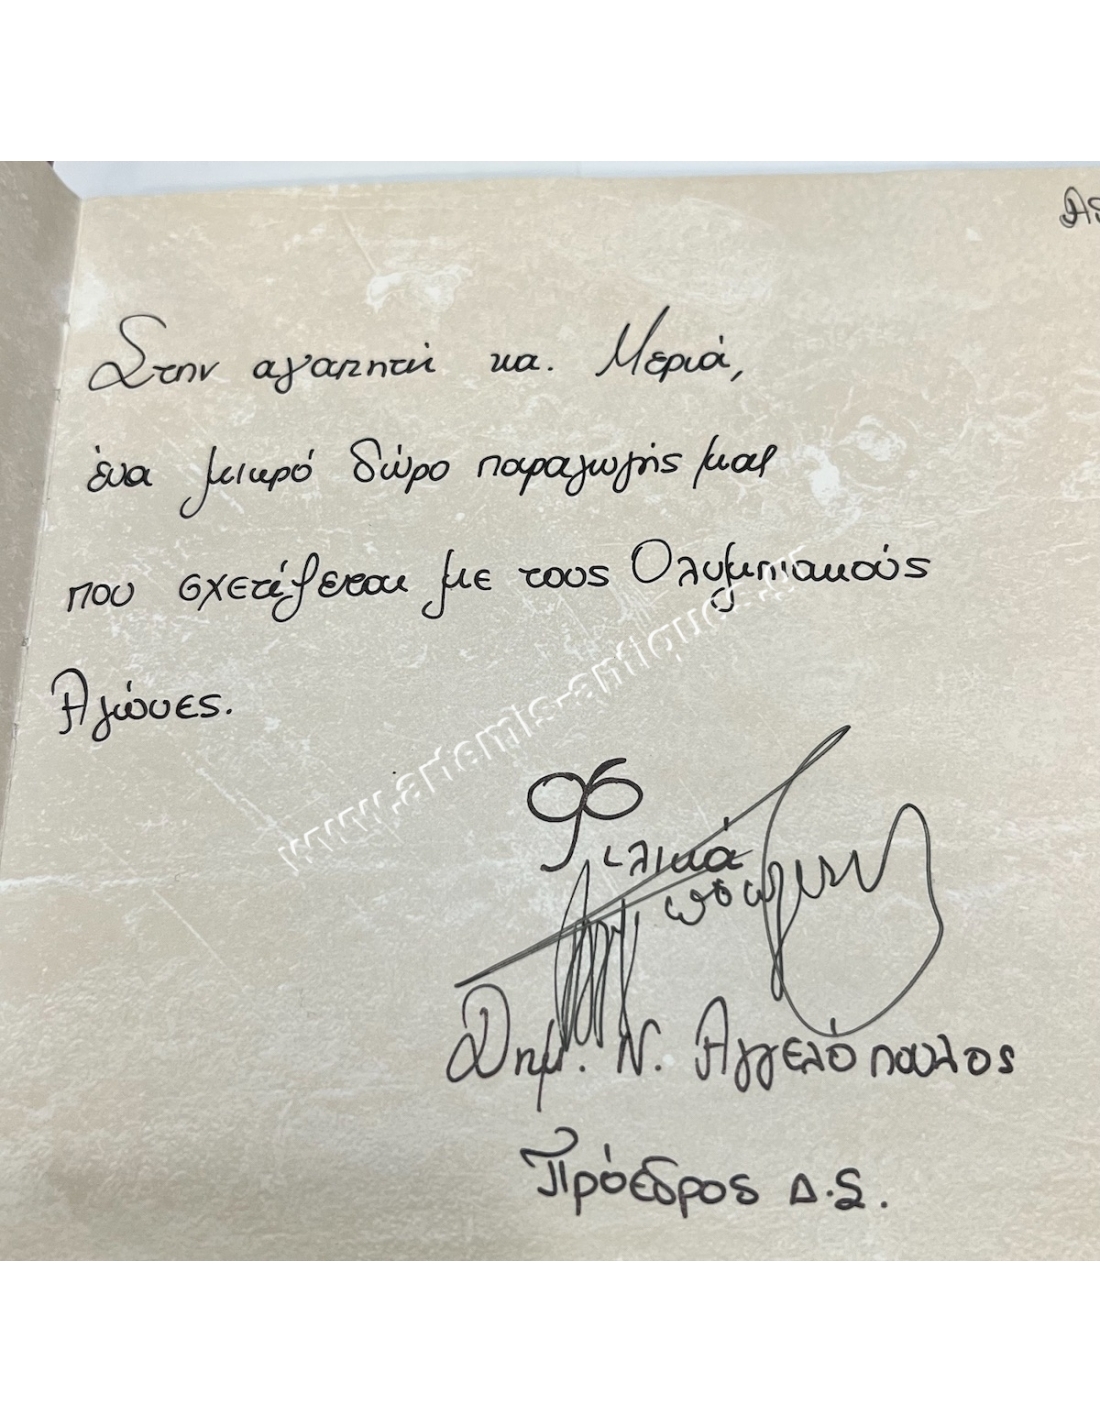 Στην αγαπητή κα. Μεριά,
ένα μικρό δώρο παραγωγής μας
που σχετίζεται με τους Ολυμπιακούς
Αγώνες.
Φιλικά
Δημ. Ν. Αγγελόπουλος
Πρόεδρος Δ.Σ.